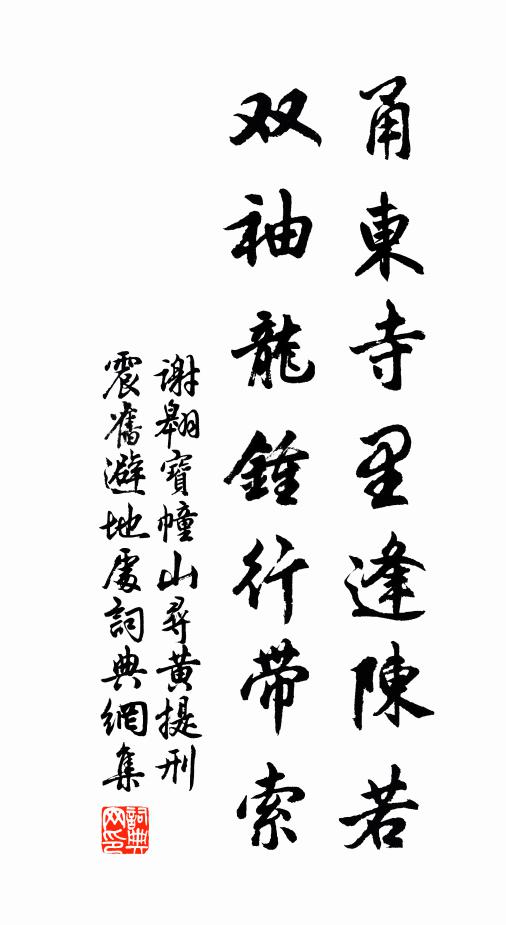 甬東寺里逢陳若
双袖龍鍾行带索
谢翱寶幢山尋黄提刑
震舊避地處詞典網集
詞典网印